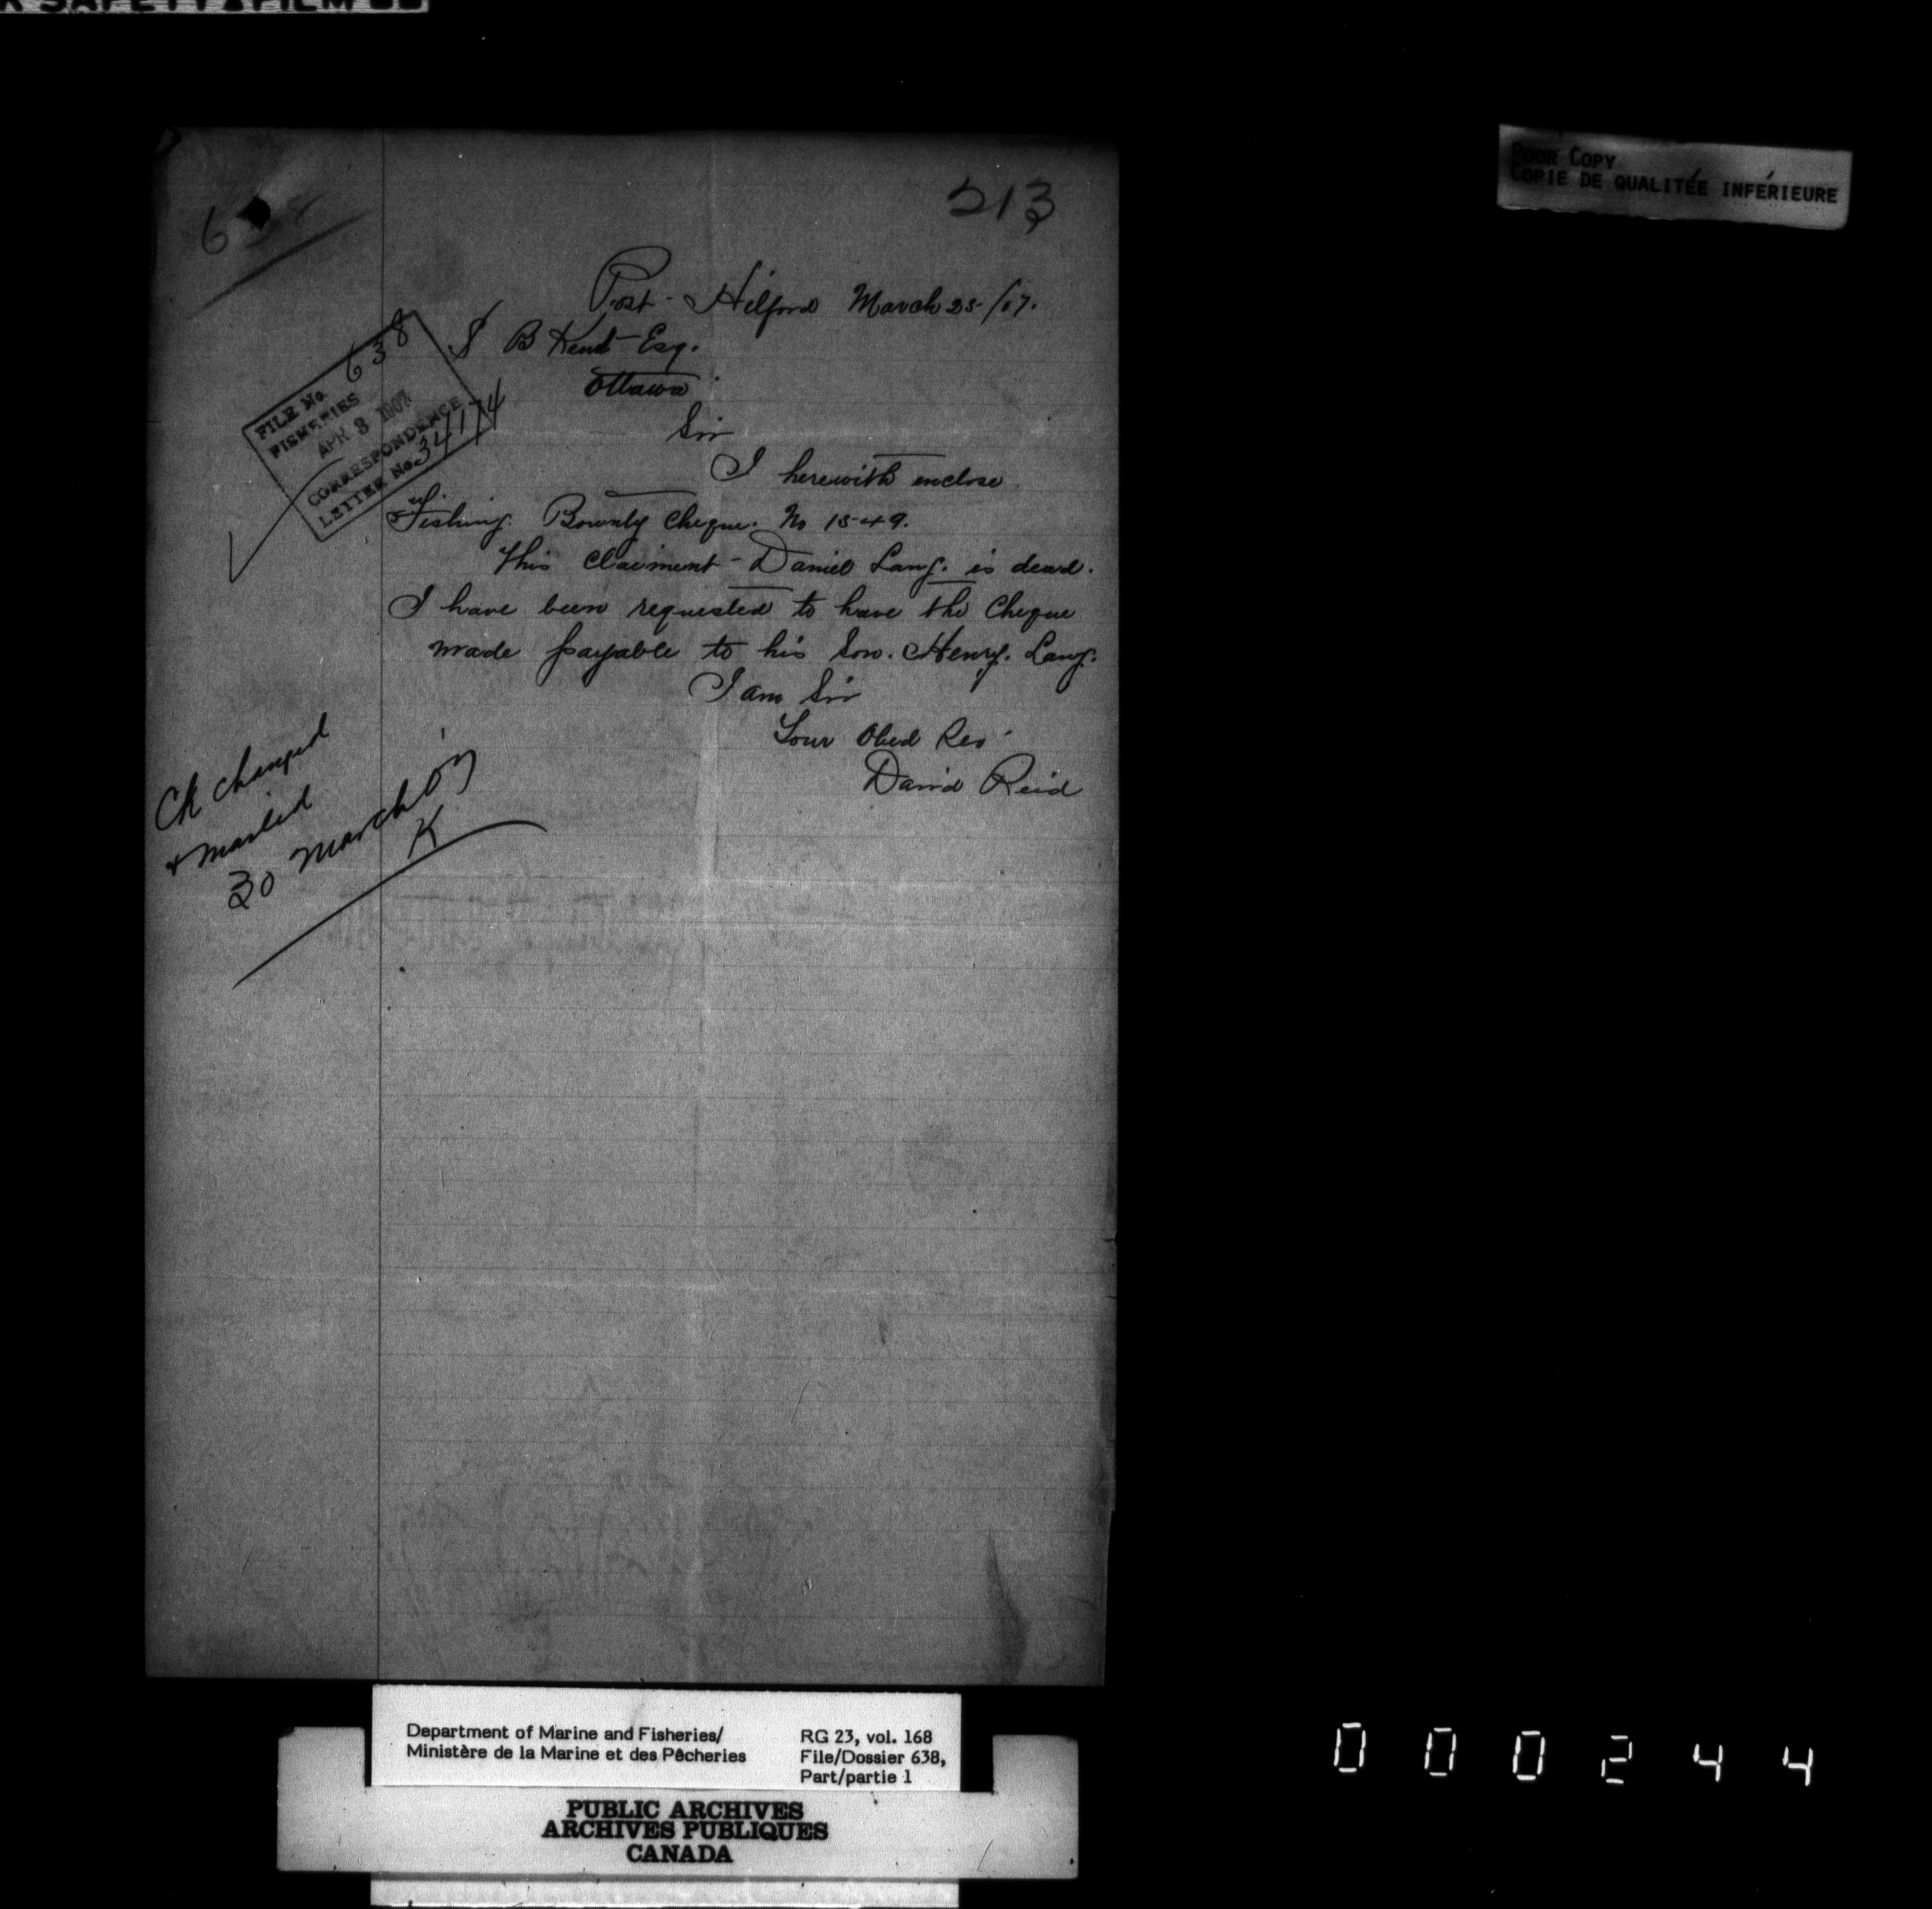 213
638
Port Hilford March 25/07.
S B Kent Esq.
Ottawa
Sir
I herewith enclose
Fishing Bounty Cheque. No 1549.
This Claiment Daniel Lang. is dead.
I have been requested to have the Cheque
made payable to his Son. Henry. Lang.
I am Sir
Your Obed Ser
David Reid
FILE No. 638
FISHERIES
APR 3 1907
CORRESPONDENCE
LETTER No. 34174
Ck changed
& mailed
30 March 07
K
POOR COPY
COPIE DE QUALITÉE INFÉRIEURE
Department of Marine and Fisheries/
Ministère de la Marine et des Pêcheries
RG 23, vol. 168
File/Dossier 638,
Part/partie 1
PUBLIC ARCHIVES
ARCHIVES PUBLIQUES
CANADA
000244